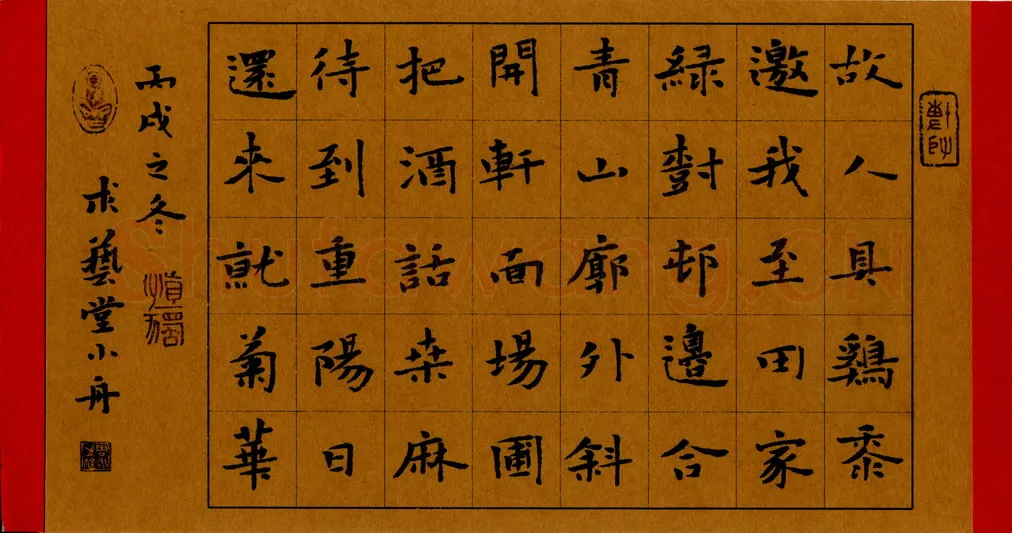 故人具鷄黍
邀我至田家
緑樹邨邊合
青山廓外斜
開軒面場圃
把酒話桒麻
待到重陽日
還來就菊華
丙戌之冬
求藝堂小舟
慎獨
Shufawang.CN